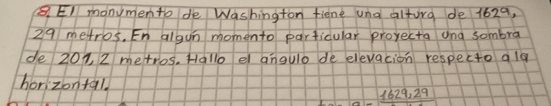 8. El monumento de Washington tiene una altura de 1629,
29 metros. En algun momento particular proyecta una sombra
de 201,2 metros. Hallo el angulo de elevación respecto a la
horizontal.
1629,29